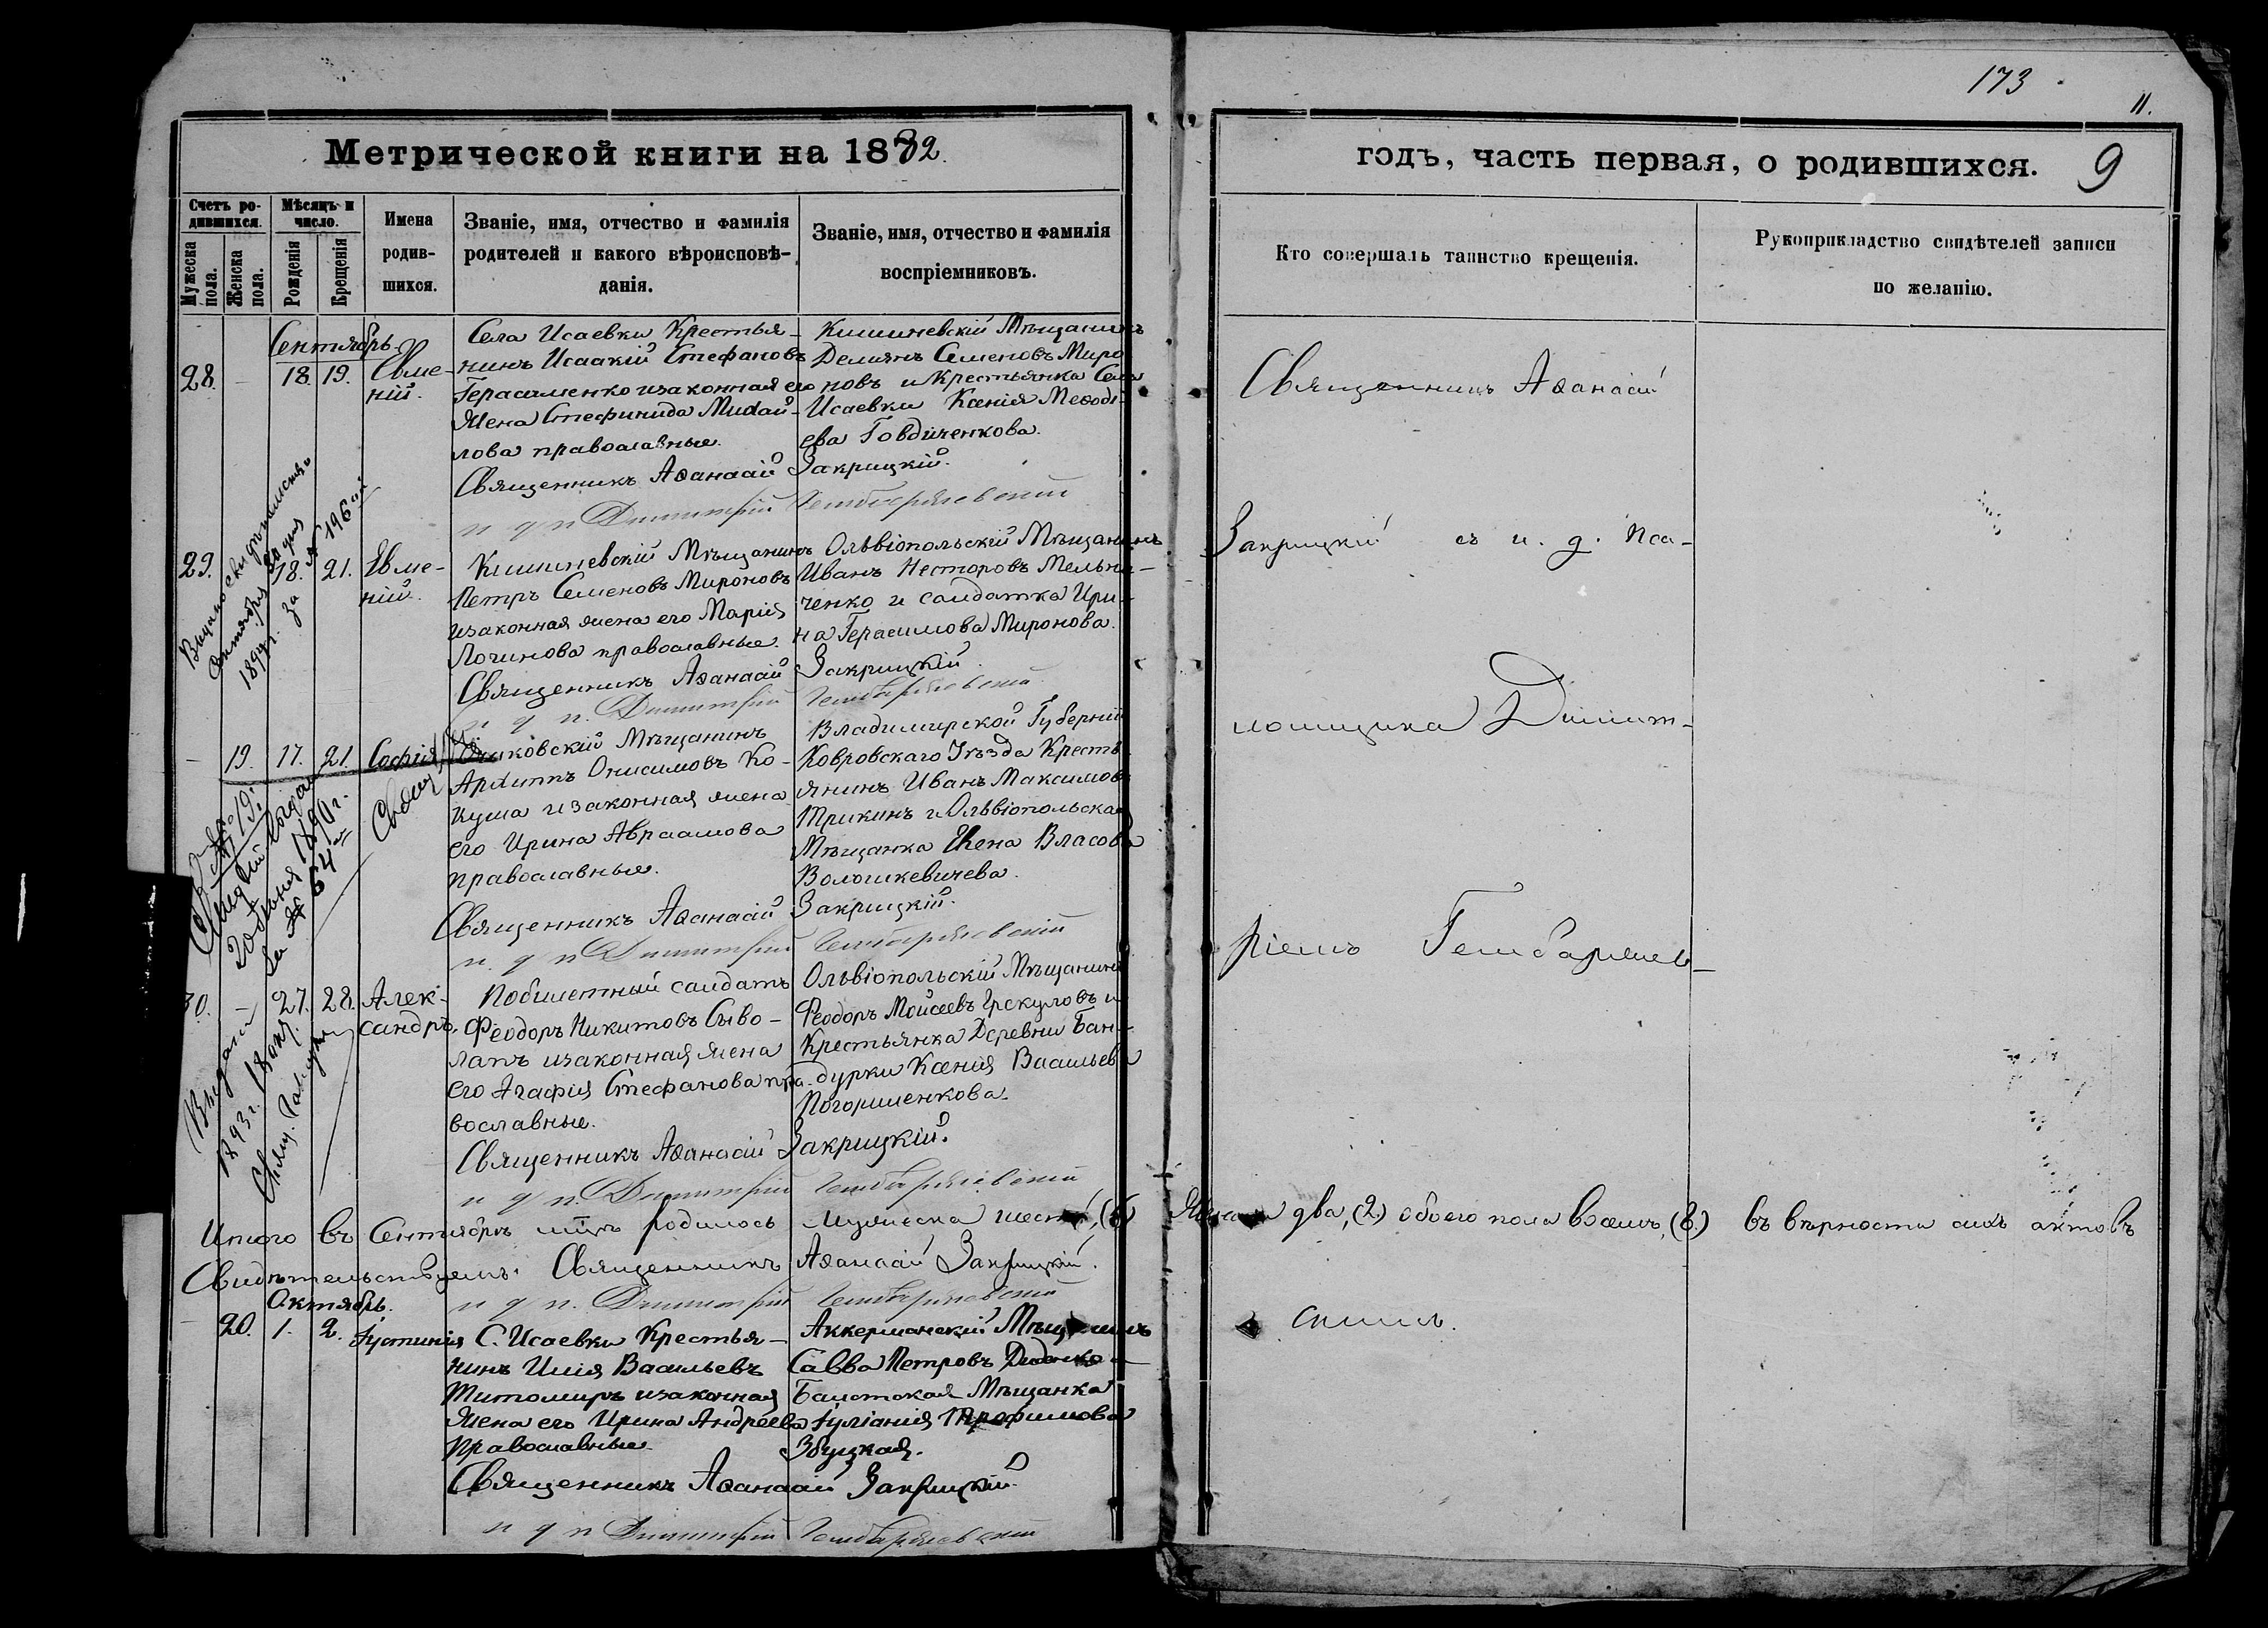 173
11.
Метрической книги на 1882.
годъ, часть первая, о родившихся. 9
Счетъ ро-
дившихся.
Мужеска пола.
Женска пола.
Мѣсяцъ и
число.
Рожденія
Крещенія
Имена
родив-
шихся.
Званіе, имя, отчество и фамилія
родителей и какого вѣроисповѣ-
данія.
Званіе, имя, отчество и фамилія
воспріемниковъ.
Кто совершалъ таинство крещенія.
Рукоприкладство свидѣтелей записи
по желанію.
Сентябрь.
28. - 18. 19. Евме-
ній.
Села Исаевки Крестья-
нинъ Исаакій Стефановъ
Герасименко изаконная его
Жена Стефанида Михай-
лова православные.
Кишиневскій Мѣщанинъ
Деміянъ Семеновъ Миро
новъ и Крестьянка Села
Исаевки Ксенія Меѳоді-
ева Говдиченкова.
Священникъ Аѳанасій Закрицкій.
и д п Димитрій Гембаржевскій
29. 18. 21. Евме-
ній.
Кишиневскій Мѣщанинъ
Петръ Семеновъ Мироновъ
изаконная жена его Марія
Логинова православные.
Ольвіопольскій Мѣщанинъ
Иванъ Несторовъ Мельни-
ченко и солдатка Ири-
на Герасимова Миронова.
Священникъ Аѳанасій Закрицкій.
и д п. Димитрій Гембаржевскій
Выдано свидѣтельство
Октября 30 дня
1899 г. за № 196й
- 19. 17. 21. Софія
Мѣщанинъ
Архипъ Онисимовъ Ко-
куша изаконная жена
его Ирина Авраамова
православные.
Владимирской Губерніи
Ковровскаго Уѣзда Кресть-
янинъ Иванъ Максимовъ
Трикинъ и Ольвіопольская
Мѣщанка Елена Власова
Волошкевичева.
Священникъ Аѳанасій Закрицкій.
и. д п Димитрій Гембаржевскій
1890 г.
за № 64й
30. - 27. 28. Алек-
сандръ.
Побилетный солдатъ
Феодоръ Никитовъ Сыво-
лапъ изаконная жена
его Агафія Стефанова пра-
вославные.
Ольвіопольскій Мѣщанинъ
Феодоръ Моисеевъ Грекуловъ и
Крестьянка Деревни Бан-
дурки Ксенія Васильева
Погориленкова.
Священникъ Аѳанасій Закрицкій.
и д п Димитрій Гембаржевскій
Выдана
1893 г.
Итого въ Сентябрѣ мцѣ родилось Мужеска шесть, (6) Женска два, (2) обоего пола восемь, (8.) въ вѣрности сихъ актовъ
Свидѣтельствуемъ: Священникъ Аѳанасій Закрицкій.
и д п. Димитрій Гембаржевскій
Октябрь.
- 20. 1. 2. Іустинія
С. Исаевки Крестья-
нинъ Илія Васильевъ
Житомиръ изаконная
Жена его Ирина Андреева
Православные.
Аккерманскій Мѣщанинъ
Савва Петровъ Диденко и
Балтская Мѣщанка
Іуліанія Трофимова
Збуцкая.
Священникъ Аѳанасій Закрицкій
и д п Димитрій Гембаржевскій
Священникъ Аѳанасій
Закрицкій съ и. д. Пса-
ломщика Димит-
ріемъ Гембаржев-
скимъ.